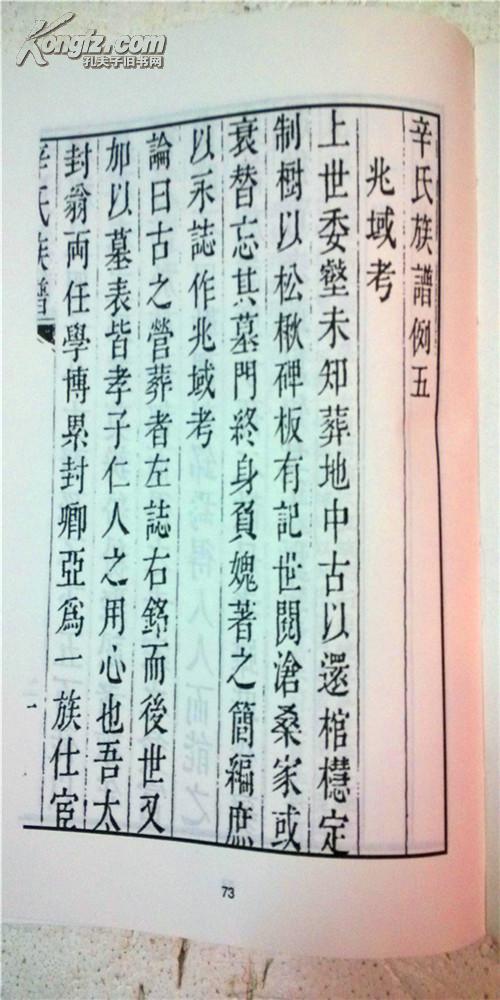 Kongfz.com
孔夫子旧书网
辛氏族譜例五
兆域考
上世委壑未知葬地中古以還棺槥定
制樹以松楸碑板有記世閱滄桑家或
衰替忘其墓門終身負媿著之簡編庶
以永誌作兆域考
論曰古之營葬者左誌右銘而後世又
加以墓表皆孝子仁人之用心也吾太
封翁兩任學博累封卿亞爲一族仕宦
辛氏族譜
一
73